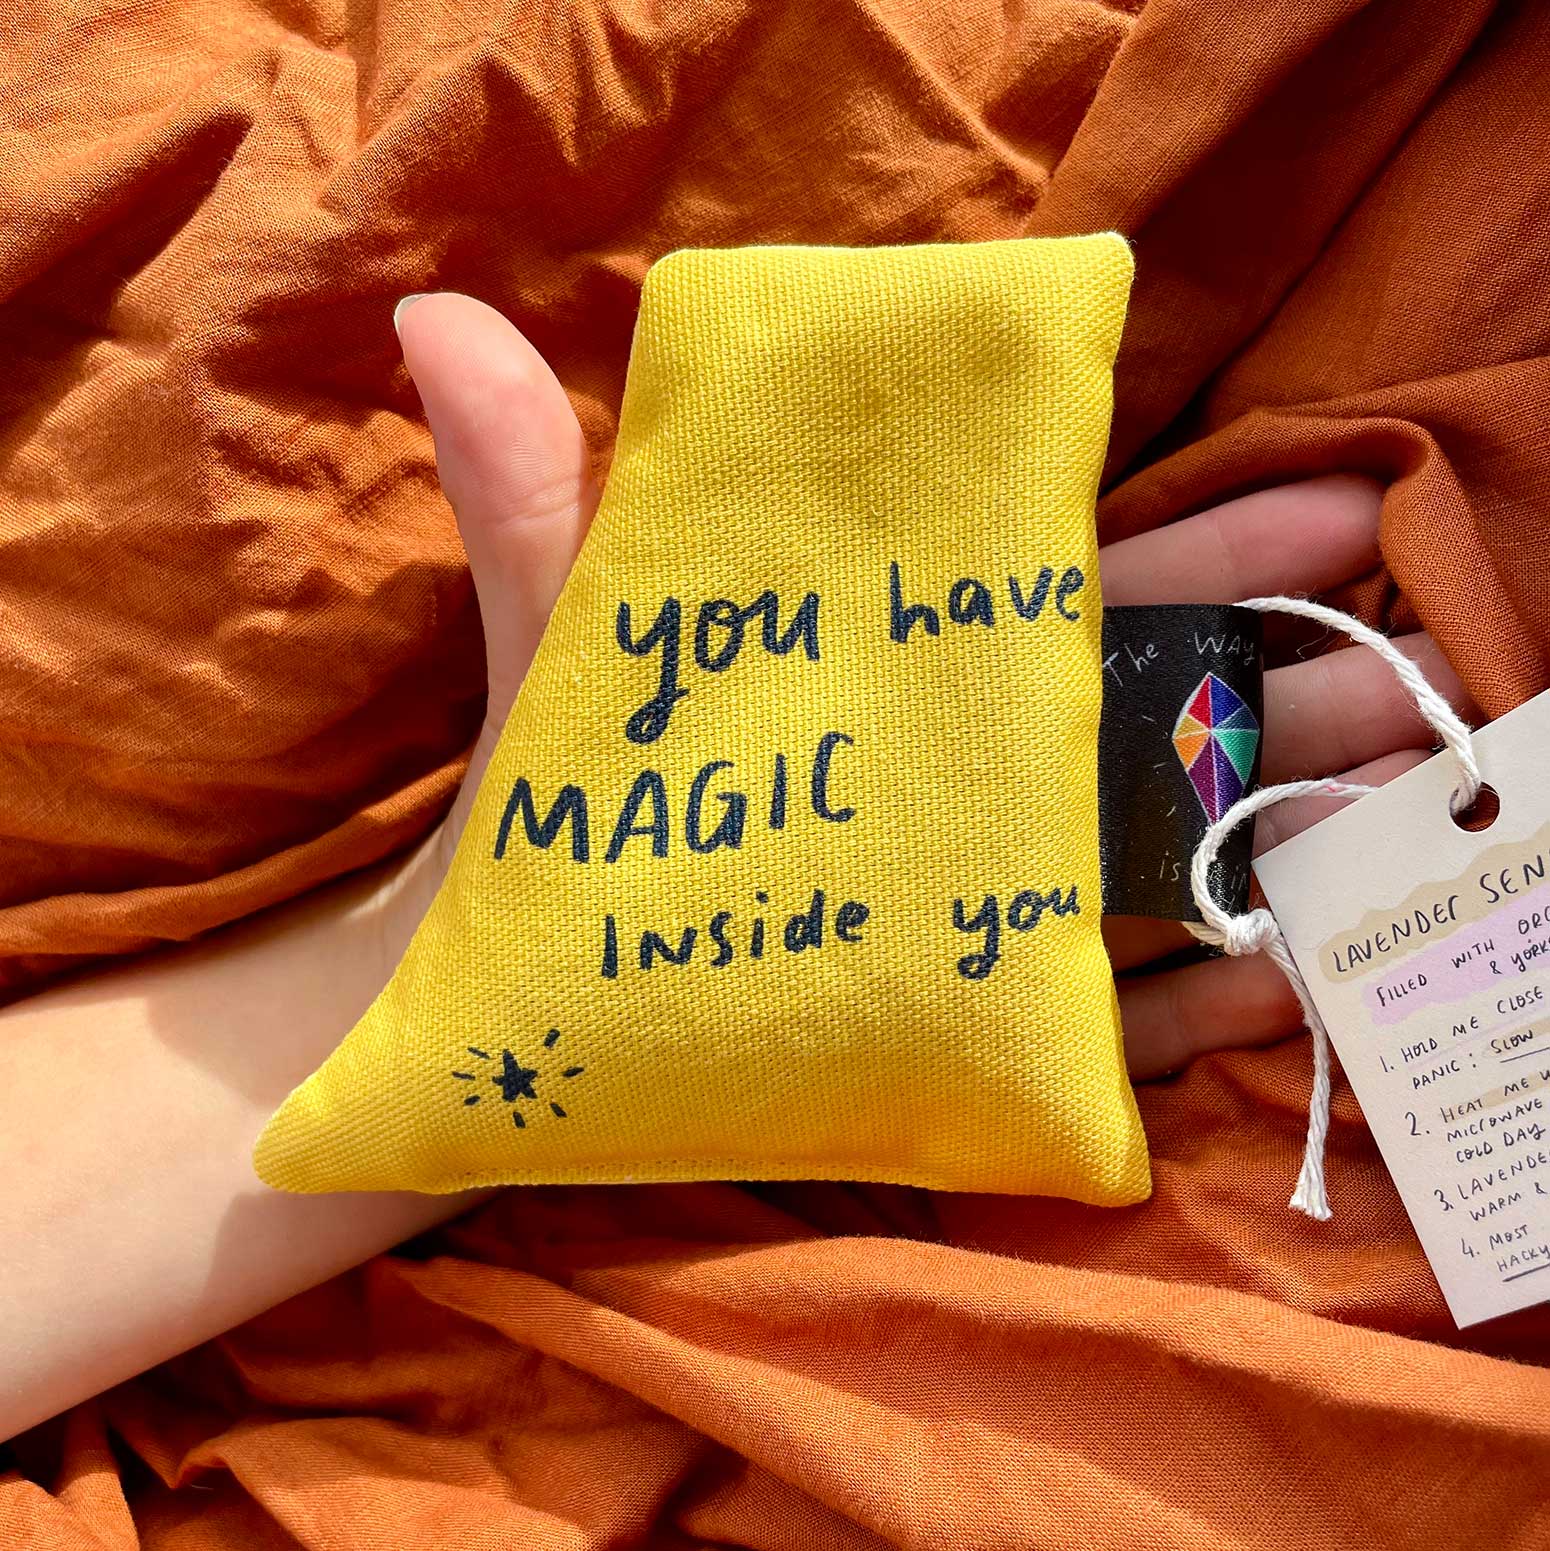 you have
MAGIC
INSide you
The WAY
is in
LAVENDER SEN
FILLED WITH ORG
& YORKS
1. HOLD ME CLOSE
PANIC: SLOW
2. HEAT ME W
MICROWAVE
COLD DAY
3. LAVENDE
WARM &
4. MOST
HACKY